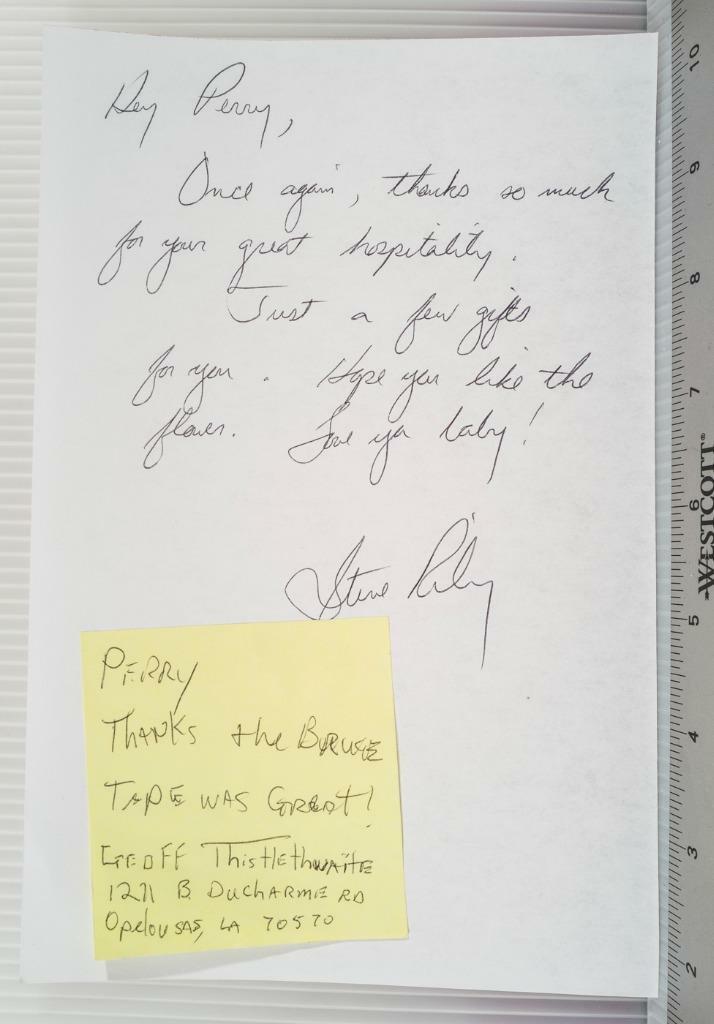 Hey Perry,
Once again, thanks so much
for your great hospitality.
Just a few gifts
for you. Hope you like the
flower. Love ya baby!
Steve Riley
PERRY
THANKS the
TAPE WAS GREAT!
GEOFF Thistlethwaite
1211 B Ducharme RD
Opelousas, LA 70570
10
9
8
7
6
WESTCOTT
5
4
3
2